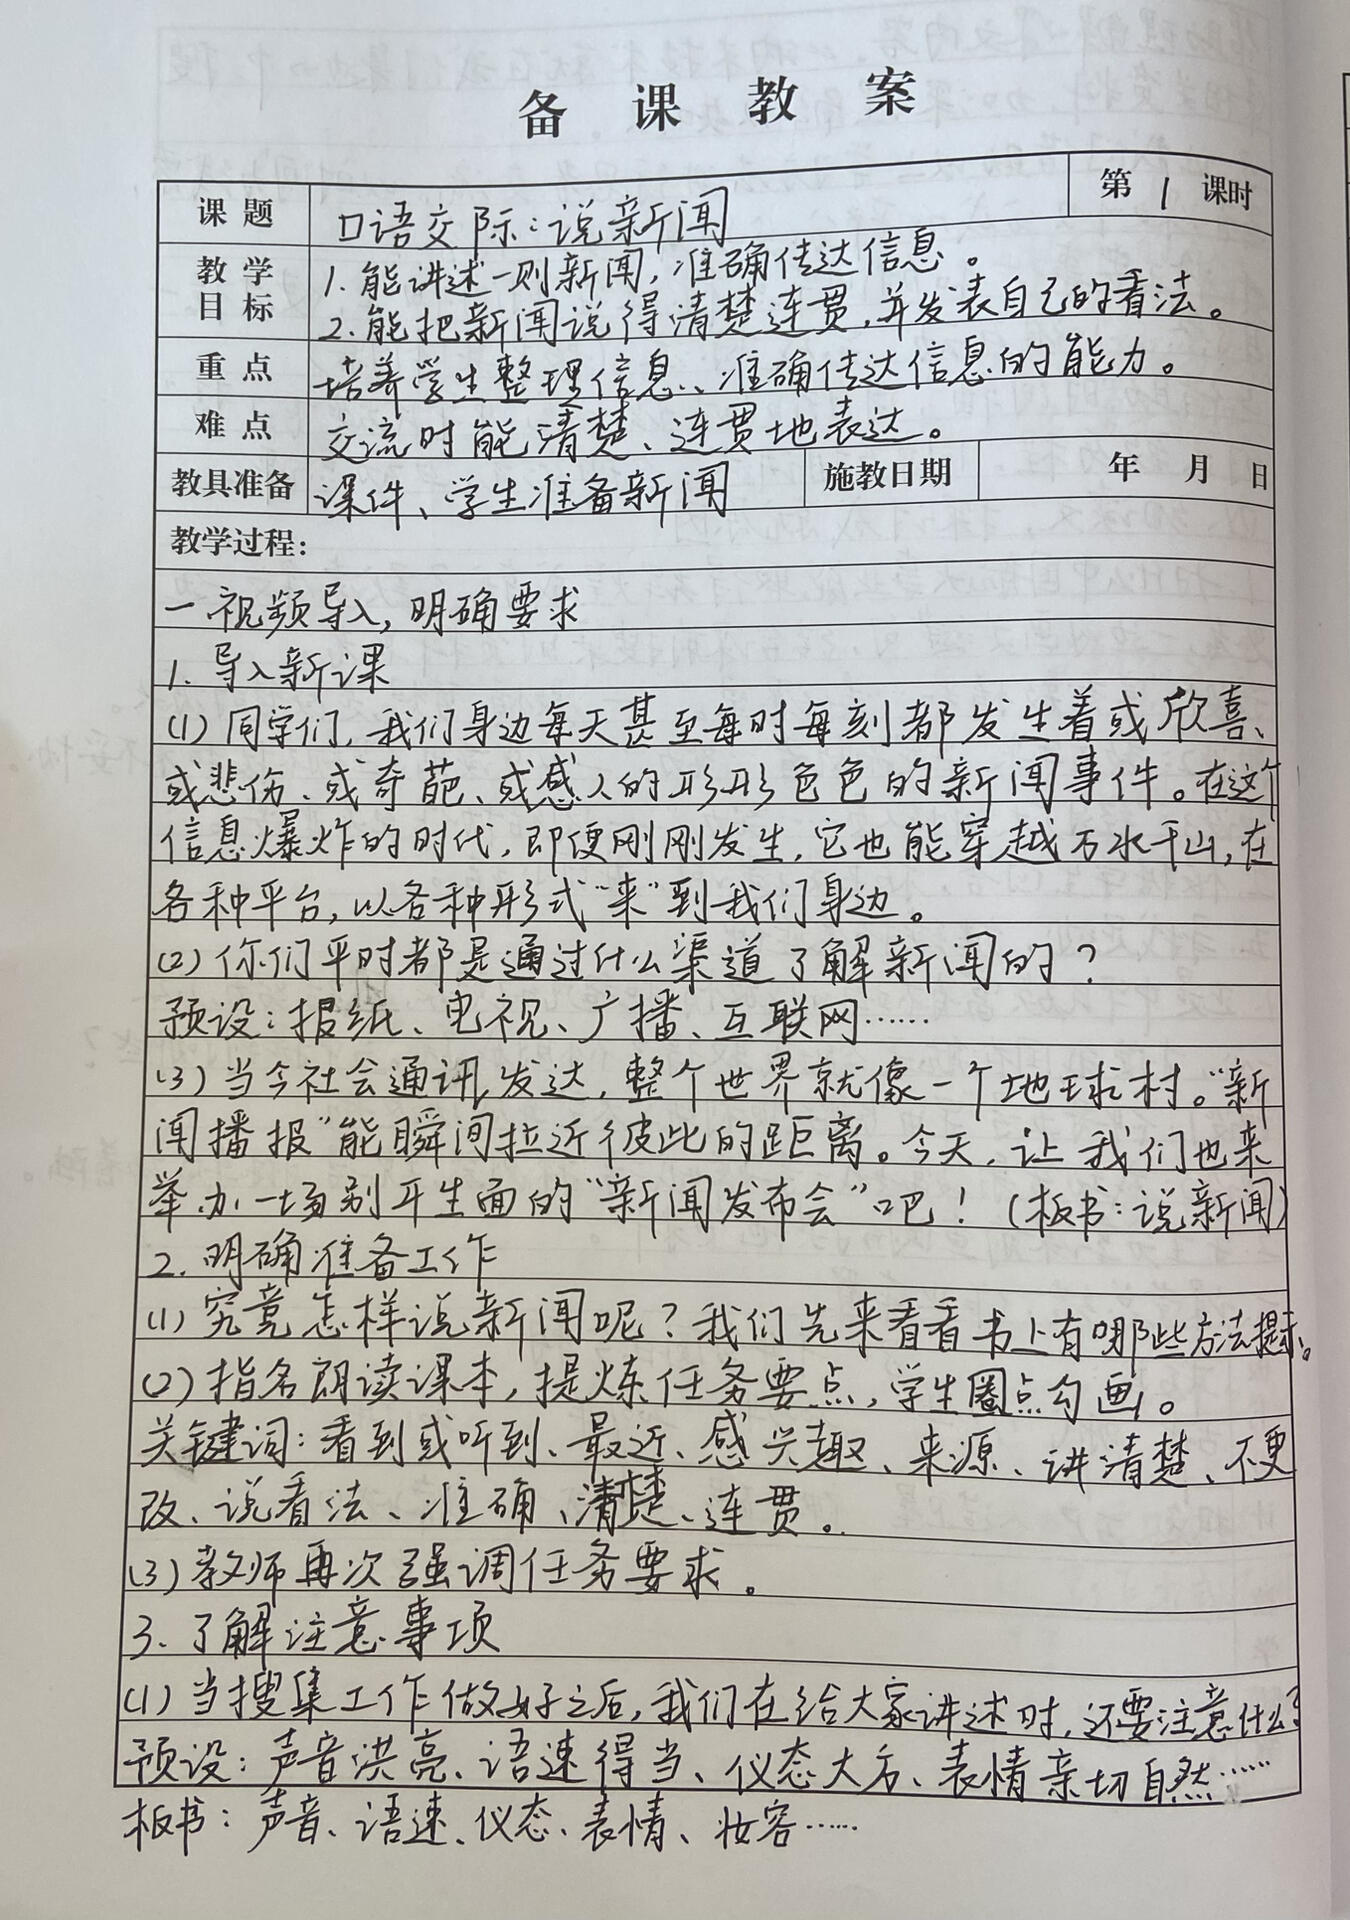 备课教案
课题 口语交际：说新闻 第1课时
教学目标 1.能讲述一则新闻，准确传达信息。
2.能把新闻说得清楚连贯，并发表自己的看法。
重点 培养学生整理信息、准确传达信息的能力。
难点 交流时能清楚、连贯地表达。
教具准备 课件、学生准备新闻 施教日期 年 月 日
教学过程：
一视频导入，明确要求
1.导入新课
(1)同学们，我们身边每天甚至每时每刻都发生着或欣喜、
或悲伤、或奇葩、或感人的形形色色的新闻事件。在这个
信息爆炸的时代，即便刚刚发生，它也能穿越万水千山，在
各种平台，以各种形式“来”到我们身边。
(2)你们平时都是通过什么渠道了解新闻的？
预设：报纸、电视、广播、互联网……
(3)当今社会通讯发达，整个世界就像一个地球村。“新
闻播报”能瞬间拉近彼此的距离。今天，让我们也来
举办一场别开生面的“新闻发布会”吧！(板书：说新闻)
2.明确准备工作
(1)究竟怎样说新闻呢？我们先来看看书上有哪些方法提示。
(2)指名朗读课本，提炼任务要点，学生圈点勾画。
关键词：看到或听到、最近、感兴趣、来源、讲清楚、不更
改、说看法、准确、清楚、连贯。
(3)教师再次强调任务要求。
3.了解注意事项
(1)当搜集工作做好之后，我们在给大家讲述时，还要注意什么？
预设：声音洪亮、语速得当、仪态大方、表情亲切自然……
板书：声音、语速、仪态、表情、妆容……